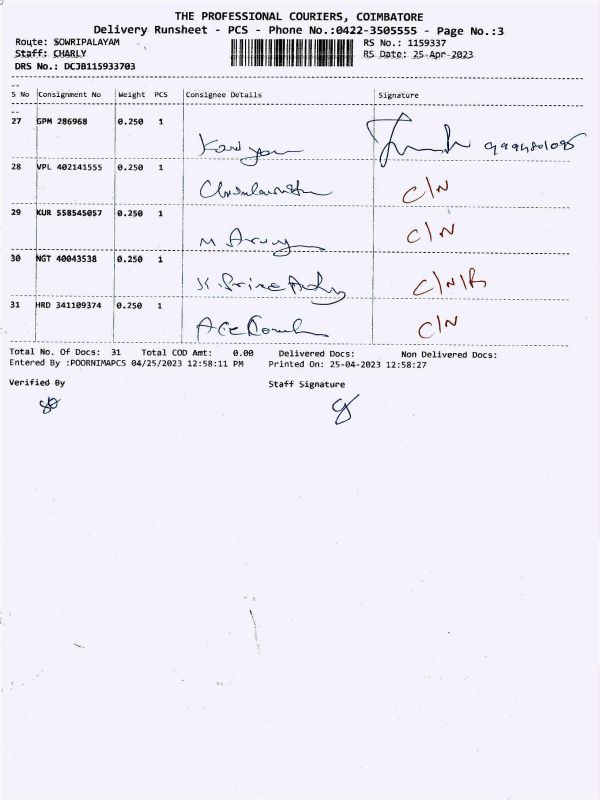 THE PROFESSIONAL COURIERS, COIMBATORE
Delivery Runsheet - PCS - Phone No.:0422-3505555 - Page No.:3
Route: SOWRIPALAYAM RS No.: 1159337
Staff: CHARLY RS Date: 25-Apr-2023
DRS No.: DCJB115933703
S No Consignment No Weight PCS Consignee Details Signature
27 GPM 286968 0.250 1
28 VPL 402141555 0.250 1
C/N
29 KUR 558545057 0.250 1
M C/N
30 NGT 40043538 0.250 1
K. C/N/R
31 HRD 341109374 0.250 1
C/N
Total No. Of Docs: 31 Total COD Amt: 0.00 Delivered Docs: Non Delivered Docs:
Entered By :POORNIMAPCS 04/25/2023 12:58:11 PM Printed On: 25-04-2023 12:58:27
Verified By Staff Signature